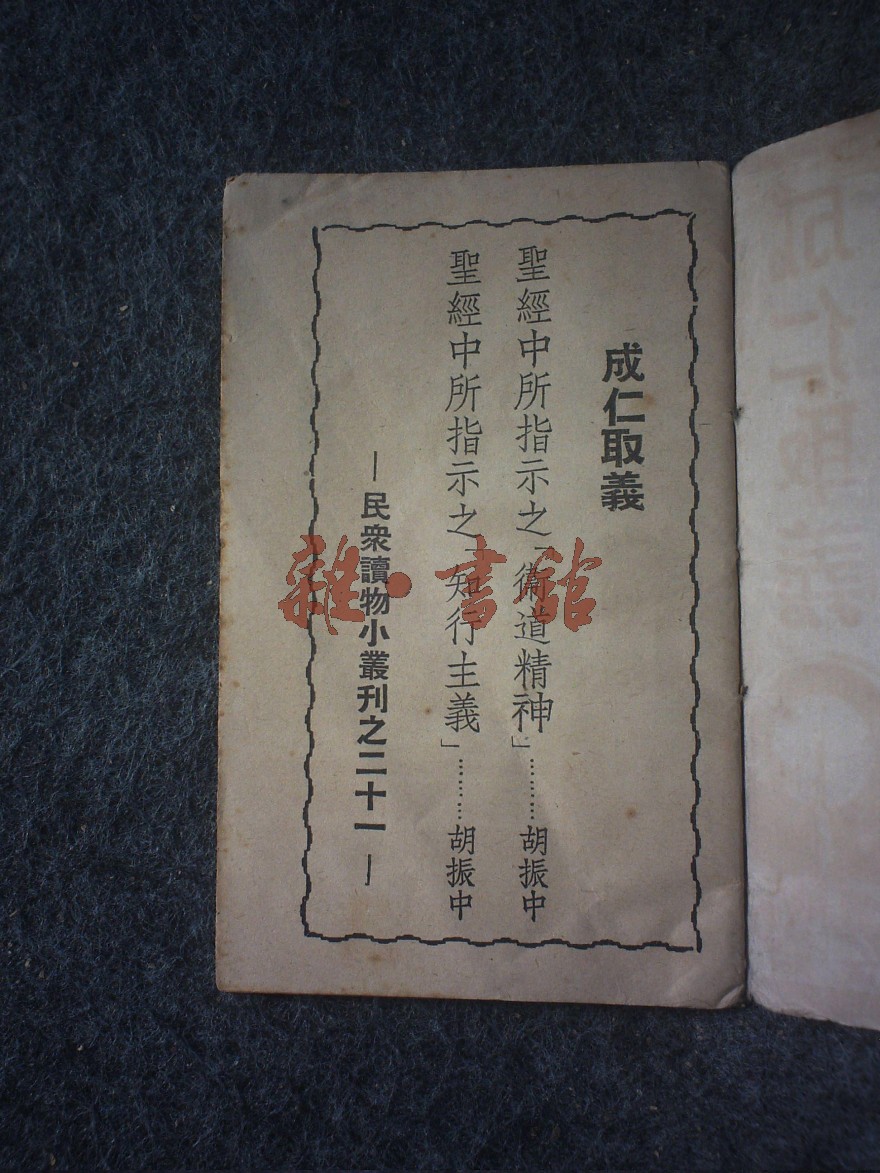 成仁取義
聖經中所指示之「衛道精神」………胡振中
聖經中所指示之「知行主義」………胡振中
—民衆讀物小叢刊之二十一—
雜·書館